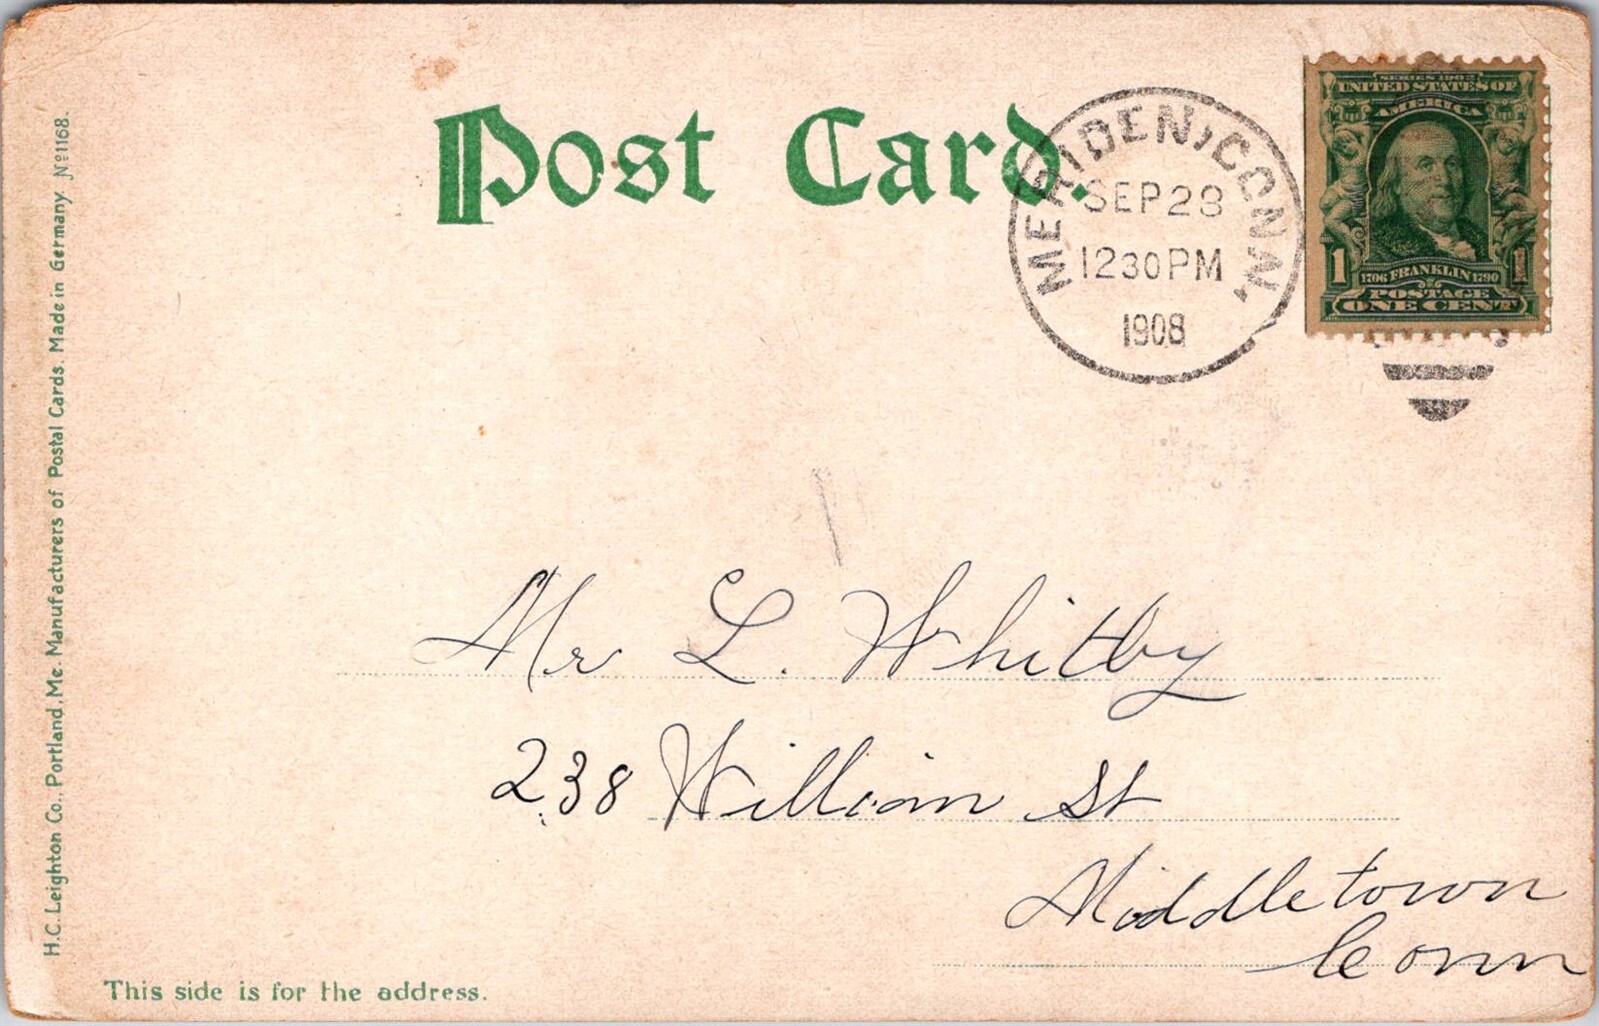 Post Card.
MERIDEN, CONN.
SEP 28
12 30 PM
1908
SERIES 1902
UNITED STATES OF
AMERICA
1 1706 FRANKLIN 1790 1
POSTAGE
ONE CENT
H.C. Leighton Co., Portland, Me. Manufacturers of Postal Cards. Made in Germany Nº 1168.
Mr L. Whitby
238 William St
Middletown
Conn
This side is for the address.